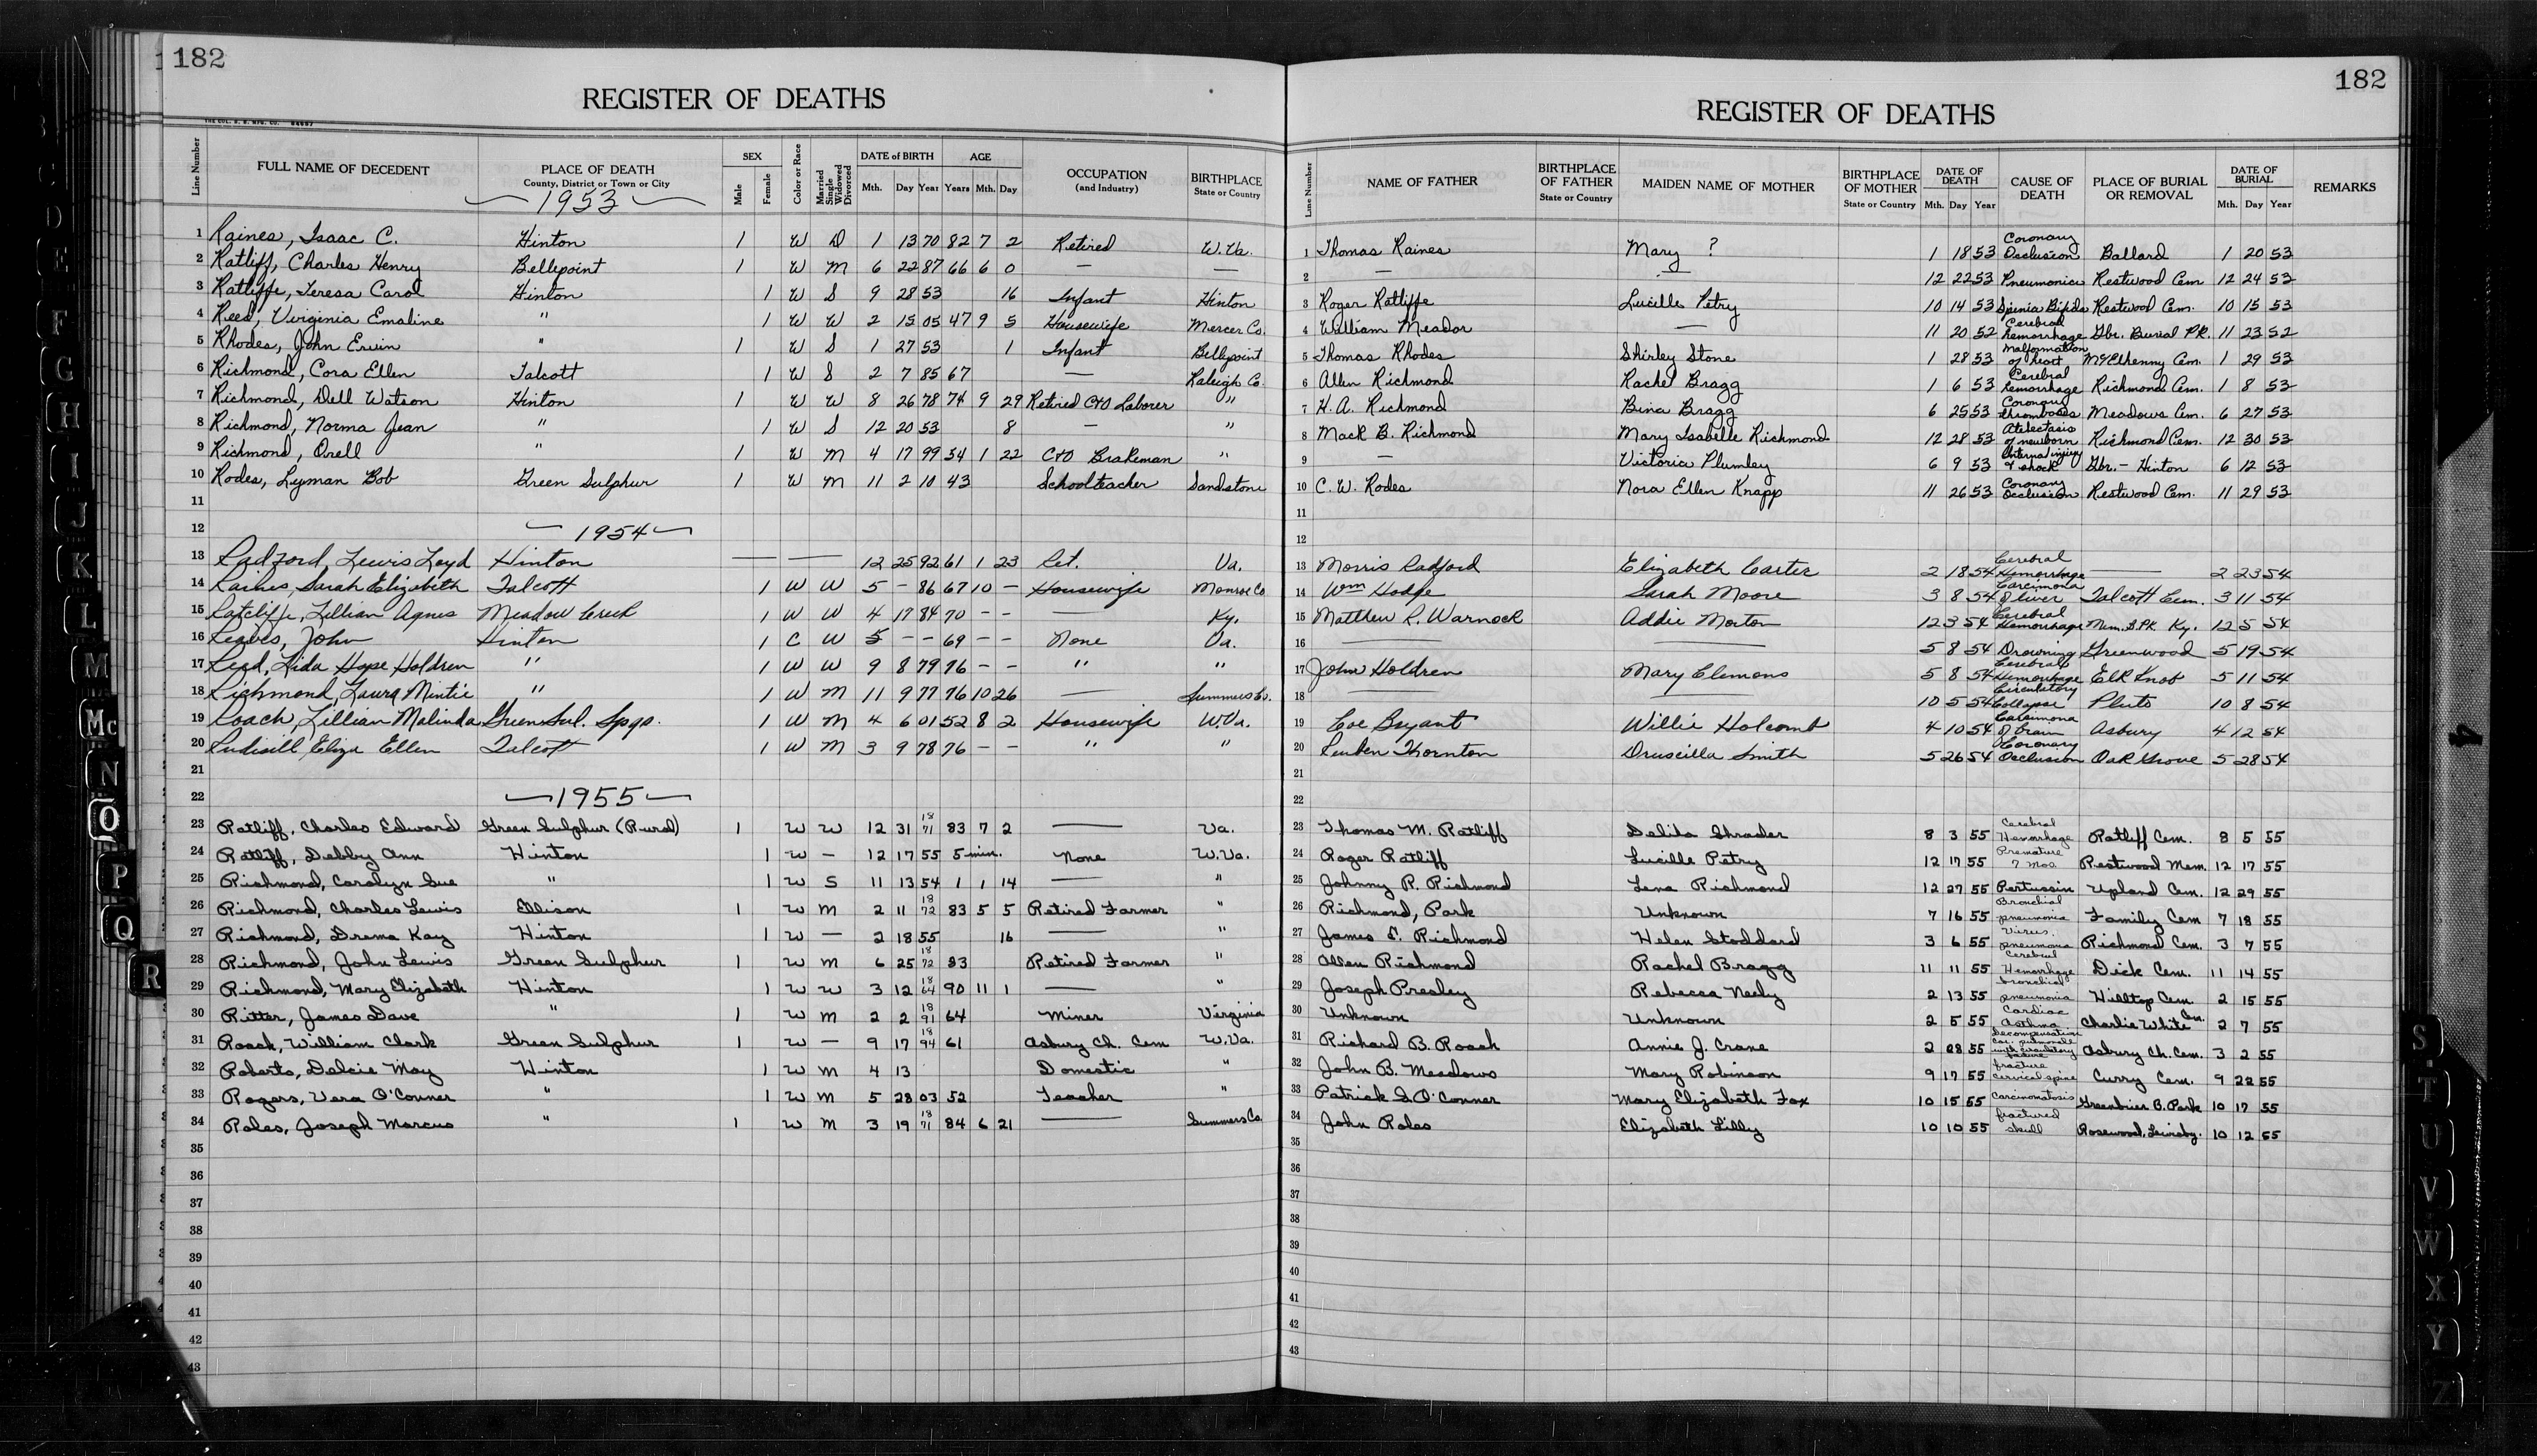 182
REGISTER OF DEATHS
Line Number FULL NAME OF DECEDENT PLACE OF DEATH County, District or Town or City SEX Male Female Color or Race Married Single Widowed Divorced DATE of BIRTH Mth. Day Year AGE Years Mth. Day OCCUPATION (and Industry) BIRTHPLACE State or Country
1953
1 Raines, Isaac C. Hinton 1 W D 1 13 70 82 7 2 Retired W. Va.
2 Ratliff, Charles Henry Bellepoint 1 W M 6 22 87 66 6 0 — —
3 Ratliffe, Teresa Carol Hinton 1 W S 9 28 53 16 Infant Hinton
4 Reed, Virginia Emaline " 1 W W 2 15 05 47 9 5 Housewife Mercer Co.
5 Rhodes, John Ervin " 1 W S 1 27 53 1 Infant Bellepoint
6 Richmond, Cora Ellen Talcott 1 W S 2 7 85 67 — Raleigh Co.
7 Richmond, Dell Watson Hinton 1 W W 8 26 78 74 9 29 Retired C&O Laborer "
8 Richmond, Norma Jean " 1 W S 12 20 53 8 — "
9 Richmond, Orell " 1 W M 4 17 99 54 1 22 C&O Brakeman "
10 Rodes, Lyman Bob Green Sulphur 1 W M 11 2 10 43 Schoolteacher Sandstone
11
12 1954
13 Radford, Lewis Loyd Hinton — — 12 25 92 61 1 23 Ret. Va.
14 Raines, Sarah Elizabeth Talcott 1 W W 5 – 86 67 10 – Housewife Monroe Co
15 Ratcliffe, Lillian Agnes Meadow Creek 1 W W 4 17 84 70 – – — Ky.
16 Reaves, John Hinton 1 C W 5 – – 69 – – None Va.
17 Reed, Lida Hope Holdren " 1 W W 9 8 79 76 – – " "
18 Richmond, Laura Mintie " 1 W M 11 9 77 76 10 26 — Summers Co.
19 Roach, Lillian Malinda Green Sul. Spgs. 1 W M 4 6 01 52 8 2 Housewife W.Va.
20 Rudisill Eliza Ellen Talcott 1 W M 3 9 78 76 – – " "
21
22 1955
23 Ratliff, Charles Edward Green Sulphur (Rural) 1 W W 12 31 1871 83 7 2 — Va.
24 Ratliff, Debby Ann Hinton 1 W — 12 17 55 5 min. None W.Va.
25 Richmond, Carolyn Sue " 1 W S 11 13 54 1 1 14 — "
26 Richmond, Charles Lewis Ellison 1 W M 2 11 1872 83 5 5 Retired Farmer "
27 Richmond, Drema Kay Hinton 1 W — 2 18 55 16 — "
28 Richmond, John Lewis Green Sulphur 1 W M 6 25 1872 83 Retired Farmer "
29 Richmond, Mary Elizabeth Hinton 1 W W 3 12 1864 90 11 1 — "
30 Ritter, James Dave " 1 W M 2 2 1891 64 Miner Virginia
31 Roach, William Clark Green Sulphur 1 W — 9 17 1894 61 Asbury Ch. Cem W.Va.
32 Roberts, Delcie May Hinton 1 W M 4 13 Domestic "
33 Rogers, Vera O'Conner " 1 W M 5 28 03 52 Teacher "
34 Roles, Joseph Marcus " 1 W M 3 19 1871 84 6 21 — Summers Co
35
36
37
38
39
40
41
42
43
182
REGISTER OF DEATHS
Line Number NAME OF FATHER BIRTHPLACE OF FATHER State or Country MAIDEN NAME OF MOTHER BIRTHPLACE OF MOTHER State or Country DATE OF DEATH Mth. Day Year CAUSE OF DEATH PLACE OF BURIAL OR REMOVAL DATE OF BURIAL Mth. Day Year REMARKS
1 Thomas Raines Mary ? 1 18 53 Coronary Occlusion Ballard 1 20 53
2 — — 12 22 53 Pneumonia Restwood Cem 12 24 53
3 Roger Ratliffe Lucille Petry 10 14 53 Spinia Bifida Restwood Cem. 10 15 53
4 William Meador — 11 20 52 Cerebral hemorrhage Gbr. Burial PK. 11 23 52
5 Thomas Rhodes Shirley Stone 1 28 53 Malformation of heart McElhenny Cem. 1 29 53
6 Allen Richmond Rachel Bragg 1 6 53 Cerebral hemorrhage Richmond Cem. 1 8 53
7 H. A. Richmond Bina Bragg 6 25 53 Coronary thrombosis Meadows Cem. 6 27 53
8 Mack B. Richmond Mary Isabelle Richmond 12 28 53 Atelectasis of newborn Richmond Cem. 12 30 53
9 — Victoria Plumley 6 9 53 Internal injury & shock Gbr. - Hinton 6 12 53
10 C. W. Rodes Nora Ellen Knapp 11 26 53 Coronary Occlusion Restwood Cem. 11 29 53
11
12
13 Morris Radford Elizabeth Carter 2 18 54 Cerebral Hemorrhage — 2 23 54
14 Wm Hodge Sarah Moore 3 8 54 Carcinoma of liver Talcott Cem. 3 11 54
15 Matthew R. Warnock Addie Morton 12 3 54 Cerebral Hemorrhage Mem. B. PK Ky. 12 5 54
16 — — 5 8 54 Drowning Greenwood 5 19 54
17 John Holdren Mary Clemons 5 8 54 Cerebral Hemorrhage Elk Knob 5 11 54
18 — — 10 5 54 Circulatory Collapse Pluto 10 8 54
19 Coe Bryant Willie Holcomb 4 10 54 Carcinoma of brain Asbury 4 12 54
20 Reuben Thornton Druscilla Smith 5 26 54 Coronary Occlusion Oak Grove 5 28 54
21
22
23 Thomas M. Ratliff Delila Shrader 8 3 55 Cerebral Hemorrhage Ratliff Cem. 8 5 55
24 Roger Ratliff Lucille Petry 12 17 55 Premature 7 mos. Restwood Mem. 12 17 55
25 Johnny R. Richmond Lena Richmond 12 27 55 Pertussin Upland Cem. 12 29 55
26 Richmond, Park Unknown 7 16 55 Bronchial pneumonia Family Cem 7 18 55
27 James S. Richmond Helen Stoddard 3 6 55 Virus pneumonia Richmond Cem. 3 7 55
28 Allen Richmond Rachel Bragg 11 11 55 Cerebral Hemorrhage Dick Cem. 11 14 55
29 Joseph Presley Rebecca Neely 2 13 55 bronchial pneumonia Hilltop Cem. 2 15 55
30 Unknown Unknown 2 5 55 Cardiac Asthma Charlie White Cem. 2 7 55
31 Richard B. Roach Annie J. Crane 2 28 55 Decompensation Cor. pulmonale with circulatory failure Asbury Ch. Cem. 3 2 55
32 John B. Meadows Mary Robinson 9 17 55 fracture cervical spine Curry Cem. 9 22 55
33 Patrick S. O'Conner Mary Elizabeth Fox 10 15 55 Carcinomatosis Greenbrier B. Park 10 17 55
34 John Roles Elizabeth Lilly 10 10 55 fractured skull Rosewood, Lewisbg. 10 12 55
35
36
37
38
39
40
41
42
43
E
F
G
H
I
J
K
L
M
Mc
N
O
P
Q
R
S
T
U
V
W
X
Y
Z
4